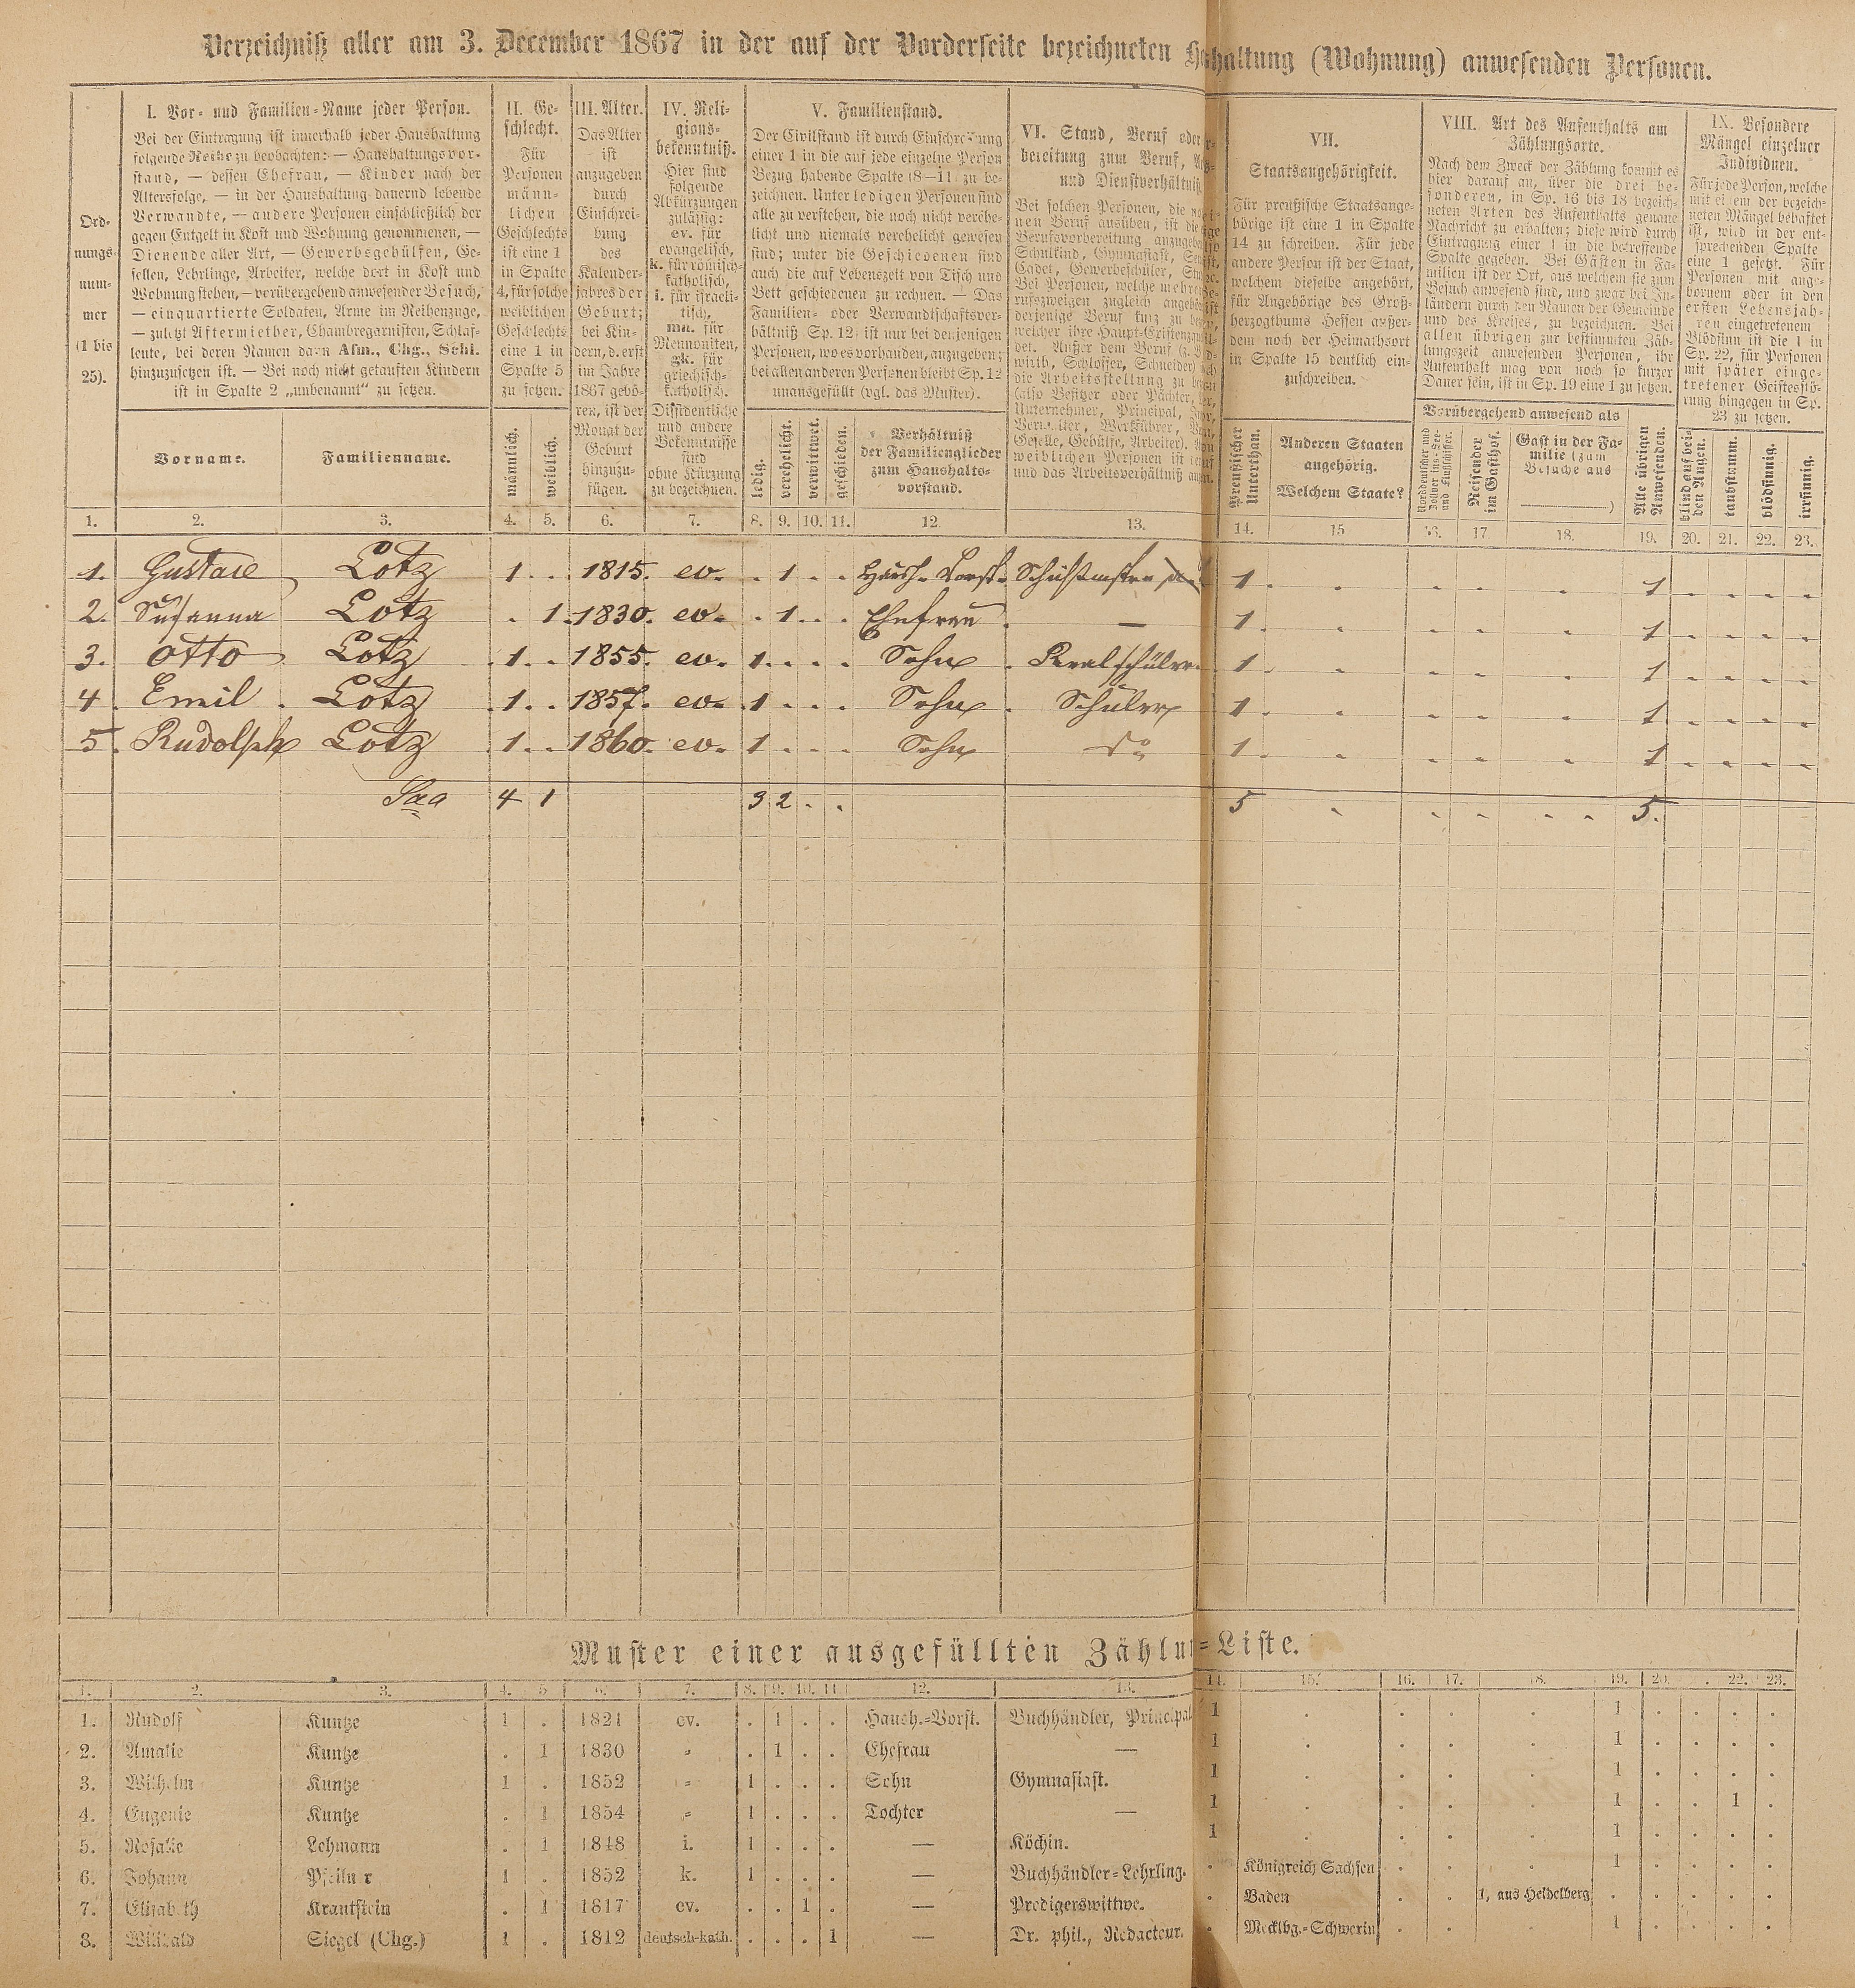 Verzeichniß aller am 3. December 1867 in der auf der Vorderseite bezeichneten Haushaltung (Wohnung) anwesenden Personen.
Ord-
nungs-
num-
mer
(1 bis
25).
I. Vor- und Familien-Name jeder Person.
Bei der Eintragung ist innerhalb jeder Haushaltung
folgende Reihe zu beobachten: — Haushaltungsvor-
stand, — dessen Ehefrau, — Kinder nach der
Altersfolge, — in der Haushaltung dauernd lebende
Verwandte, — andere Personen einschließlich der
gegen Entgelt in Kost und Wohnung genommenen, —
Dienende aller Art, — Gewerbsgehülfen, Ge-
sellen, Lehrlinge, Arbeiter, welche dort in Kost und
Wohnung stehen, — vorübergehend anwesender Besuch,
— einquartierte Soldaten, Arme im Reihenzuge,
— zuletzt Aftermiether, Chambregarnisten, Schlaf-
leute, bei deren Namen dann Afm., Chg., Schl.
hinzuzusetzen ist. — Bei noch nicht getauften Kindern
ist in Spalte 2 „unbenannt" zu setzen.
Vorname.
Familienname.
II. Ge-
schlecht.
Für
Personen
männ-
lichen
Geschlechts
ist eine 1
in Spalte
4, für solche
weiblichen
Geschlechts
eine 1 in
Spalte 5
zu setzen.
männlich.
weiblich.
III. Alter.
Das Alter
ist
anzugeben
durch
Einschrei-
bung
des
Kalender-
jahres der
Geburt;
bei Kin-
dern, d. erst
im Jahre
1867 gebo-
ren, ist der
Monat der
Geburt
hinzuzu-
fügen.
IV. Reli-
gions-
bekenntniß.
Hier sind
folgende
Abkürzungen
zulässig:
ev. für
evangelisch,
k. für römisch-
katholisch,
i. für israeli-
tisch,
mn. für
Mennoniten,
gk. für
griechisch-
katholisch.
Dissidentische
und andere
Bekenntnisse
sind
ohne Kürzung
zu bezeichnen.
V. Familienstand.
Der Civilstand ist durch Einschreibung
einer 1 in die auf jede einzelne Person
Bezug habende Spalte (8—11) zu be-
zeichnen. Unter ledigen Personen sind
alle zu verstehen, die noch nicht verehe-
licht und niemals verehelicht gewesen
sind; unter die Geschiedenen sind
auch die auf Lebenszeit von Tisch und
Bett geschiedenen zu rechnen. — Das
Familien- oder Verwandtschaftsver-
hältniß Sp. 12 ist nur bei denjenigen
Personen, wo es vorhanden, anzugeben;
bei allen anderen Personen bleibt Sp. 12
unausgefüllt (vgl. das Muster).
ledig.
verehelicht.
verwittwet.
geschieden.
Verhältniß
der Familienglieder
zum Haushalts-
vorstand.
VI. Stand, Beruf oder
bereitung zum Beruf,
und Dienstverhältniß
Bei solchen Personen, die
nen Beruf ausüben, ist die
Berufsvorbereitung anzugeben
Schulkind, Gymnasiast,
Cadet, Gewerbeschüler,
Bei Personen, welche mehreren
rufszweigen zugleich angehören
derjenige Beruf kurz zu
welcher ihre Haupt-Existenz
det. Außer dem Beruf (z. B.
wirth, Schlosser, Schneider)
die Arbeitsstellung zu
(also Besitzer oder Pächter,
Unternehmer, Principal,
Verwalter, Werkführer,
Geselle, Gehülfe, Arbeiter).
weiblichen Personen ist
und das Arbeitsverhältniß
VII.
Staatsangehörigkeit.
Für preußische Staatsange-
hörige ist eine 1 in Spalte
14 zu schreiben. Für jede
andere Person ist der Staat,
welchem dieselbe angehört,
für Angehörige des Groß-
herzogthums Hessen außer-
dem noch der Heimathsort
in Spalte 15 deutlich ein-
zuschreiben.
Preußischer
Unterthan.
Anderen Staaten
angehörig.
Welchem Staate?
VIII. Art des Aufenthalts am
Zählungsorte.
Nach dem Zweck der Zählung kommt es
hier darauf an, über die drei be-
sonderen, in Sp. 16 bis 18 bezeich-
neten Arten des Aufenthalts genaue
Nachricht zu erhalten; diese wird durch
Eintragung einer 1 in die betreffende
Spalte gegeben. Bei Gästen in Fa-
milien ist der Ort, aus welchem sie zum
Besuch anwesend sind, und zwar bei In-
ländern durch den Namen der Gemeinde
und des Kreises, zu bezeichnen. Bei
allen übrigen zur bestimmten Zäh-
lungszeit anwesenden Personen, ihr
Aufenthalt mag von noch so kurzer
Dauer sein, ist in Sp. 19 eine 1 zu setzen.
Vorübergehend anwesend als
Norddeutscher und
Zollverins-See-
und Flußschiffer.
Reisender
im Gasthof.
Gast in der Fa-
milie (zum
Besuche aus
)
Alle übrigen
Anwesenden.
IX. Besondere
Mängel einzelner
Individuen.
Für jede Person, welche
mit einem der bezeich-
neten Mängel behaftet
ist, wird in der ent-
sprechenden Spalte
eine 1 gesetzt. Für
Personen mit ange-
bornem oder in den
ersten Lebensjah-
ren eingetretenem
Blödsinn ist die 1 in
Sp. 22, für Personen
mit später einge-
tretener Geistesstö-
rung hingegen in Sp.
23 zu setzen.
blind auf bei-
den Augen.
taubstumm.
blödsinnig.
irrsinnig.
1. 2. 3. 4. 5. 6. 7. 8. 9. 10. 11. 12. 13. 14. 15 16. 17 18. 19. 20. 21. 22. 23.
1. Gustave Lotz 1 . . 1815. ev. . 1 . . Haush. Vorst. 1 . . . . . 1 . . . .
2. Susanna Lotz . 1. 1830. ev. . 1 . . Ehefrau . — 1 . . . . . 1 . . . .
3. Otto Lotz 1 . . 1855. ev. 1 . . . Sohn . Realschüler. 1 . . . . . 1 . . . .
4. Emil . Lotz . 1 . . 1857. ev. 1 . . . Sohn . Schüler 1 . . . . . 1 . . . .
5. Rudolph Lotz . 1 . . 1860. ev. 1 . . . Sohn do 1 . . . . . 1 . . . .
Sa 4 1 3 2 . . 5 . . . . . 5.
Muster einer ausgefüllten Zählungs-Liste.
1. 2. 3. 4. 5 6. 7. 8. 9. 10. 11. 12. 13. 14. 15. 16. 17. 18. 19. 20. . 22. 23.
1. Rudolf Kuntze 1 . 1821 ev. . 1 . . Haush.-Vorst. Buchhändler, Principal 1 . . . . 1 . . . .
2. Amalie Kuntze . 1 1830 " . 1 . . Ehefrau — 1 . . . . 1 . . . .
3. Wilhelm Kuntze 1 . 1852 " 1 . . . Sohn Gymnasiast. 1 . . . . 1 . . . .
4. Eugenie Kuntze . 1 1854 " 1 . . . Tochter — 1 . . . . 1 . . 1 .
5. Rosalie Lehmann . 1 1848 i. 1 . . . — Köchin. 1 . . . . 1 . . . .
6. Johann Pfeilner 1 . 1852 k. 1 . . . — Buchhändler-Lehrling. . Königreich Sachsen . . . 1 . . . .
7. Elisabeth Krautstein . 1 1817 ev. . . 1 . — Predigerswittwe. . Baden . . 1, aus Heidelberg . . . . .
8. Willibald Siegel (Chg.) 1 . 1812 deutsch-kath. . . . 1 — Dr. phil., Redacteur. . Mecklbg.-Schwerin . . . 1 . . . .